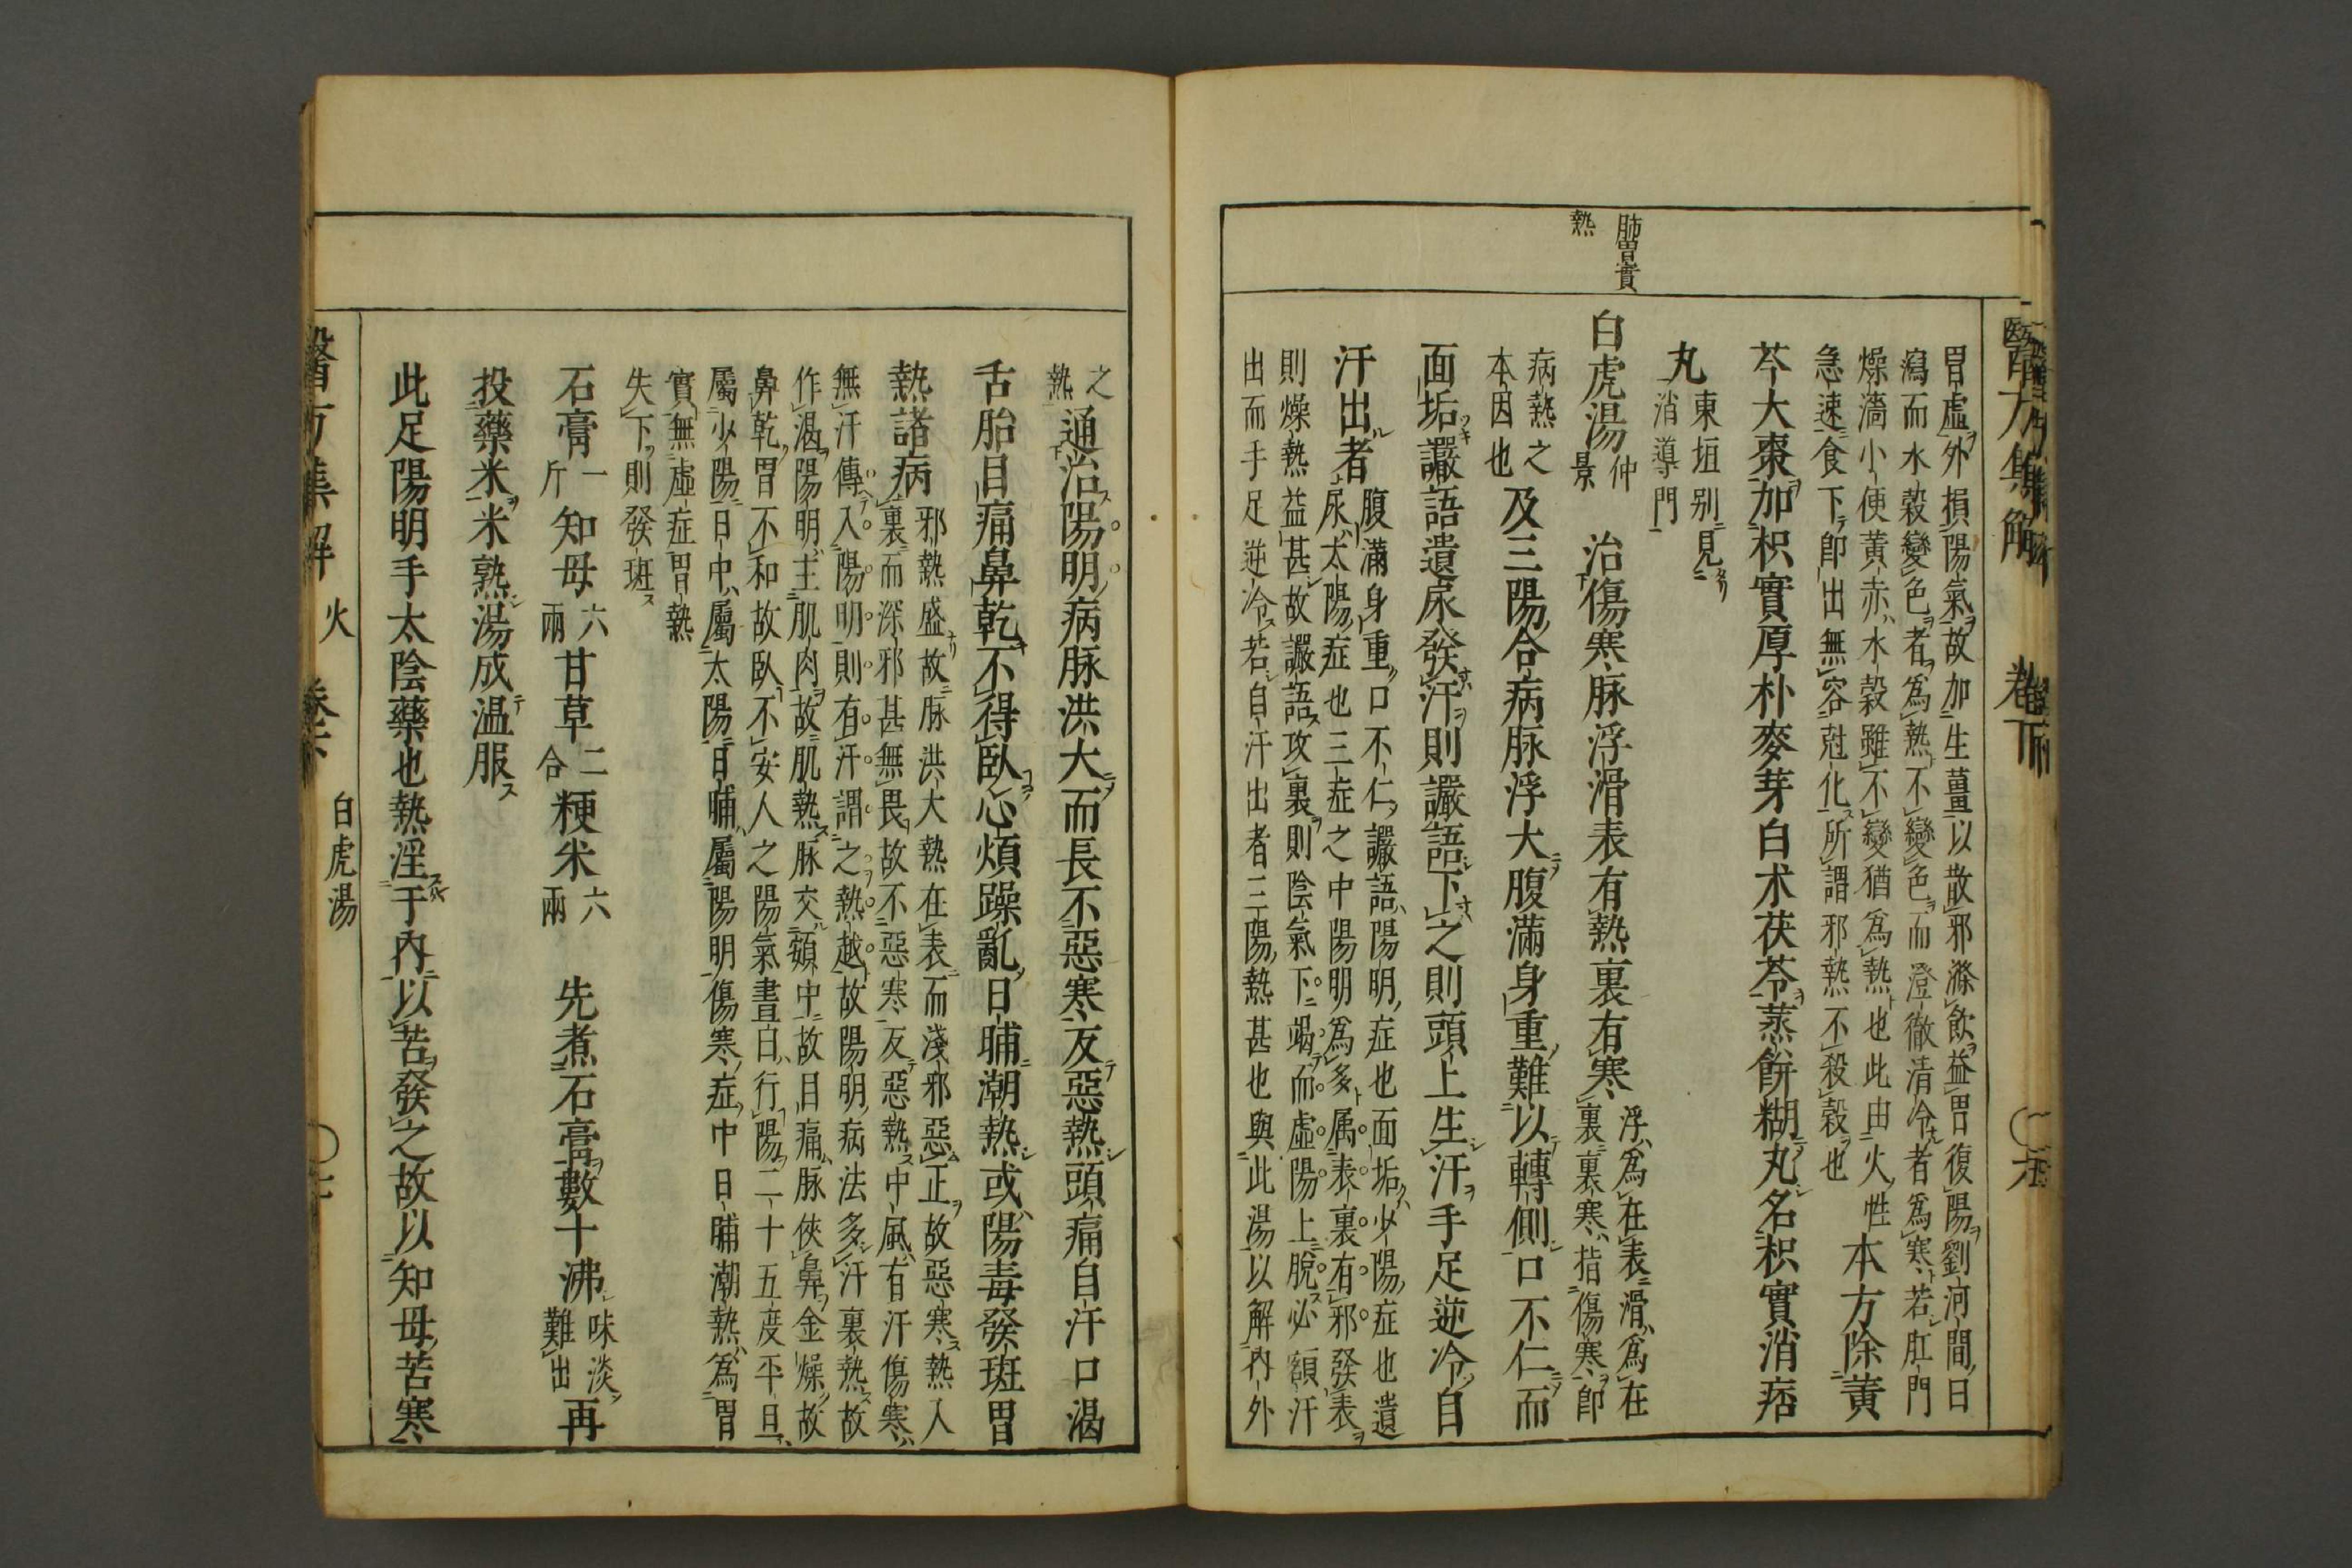 肺胃實
熱
胃虛外損陽氣故加生薑以散邪滌飮益胃復陽劉河間曰
瀉而水穀變色者爲熱不變色而澄徹清冷者爲寒若肛門
燥濇小便黃赤水穀雖不變猶爲熱也此由火性
急速食下即出無容尅化所謂邪熱不殺穀也
本方除黃
芩大棗加枳實厚朴麥芽白朮茯苓蒸餅糊丸名枳實消痞
丸
東垣别見
消導門
白虎湯
仲
景
治傷寒脉浮滑表有熱裏有寒
浮爲在表滑爲在
裏裏寒指傷寒即
病熱之
本因也
及三陽合病脉浮大腹滿身重難以轉側口不仁而
面垢讝語遺尿發汗則讝語下之則頭上生汗手足逆冷自
汗出者
腹滿身重口不仁讝語陽明症也面垢少陽症也遺
尿太陽症也三症之中陽明爲多属表裏有邪發表
則燥熱益甚故讝語攻裏則陰氣下竭而虛陽上脫必額汗
出而手足逆冷若自汗出者三陽熱甚也與此湯以解內外
之
熱
通治陽明病脉洪大而長不惡寒反惡熱頭痛自汗口渴
舌胎目痛鼻乾不得臥心煩躁亂日晡潮熱或陽毒發斑胃
熱諸病
邪熱盛故脉洪大熱在表而淺邪惡正故惡寒熱入
裏而深邪甚無畏故不惡寒反惡熱中風有汗傷寒
無汗傳入陽明則有汗謂之熱越故陽明病法多汗裏熱故
作渴陽明主肌肉故肌熱脉交頞中故目痛脉俠鼻金燥故
鼻乾胃不和故臥不安人之陽氣晝日行陽二十五度平旦
屬少陽日中屬太陽日晡屬陽明傷寒症中日晡潮熱爲胃
實無虛症胃熱
失下則發斑
石膏
一
斤
知母
六
兩
甘草
二
合
粳米
六
兩
先煮石膏數十沸
味淡
難出
再
投藥米米熟湯成温服
此足陽明手太陰藥也熱淫于內以苦發之故以知母苦寒
醫方集解 火 白虎湯
醫方集解 卷下